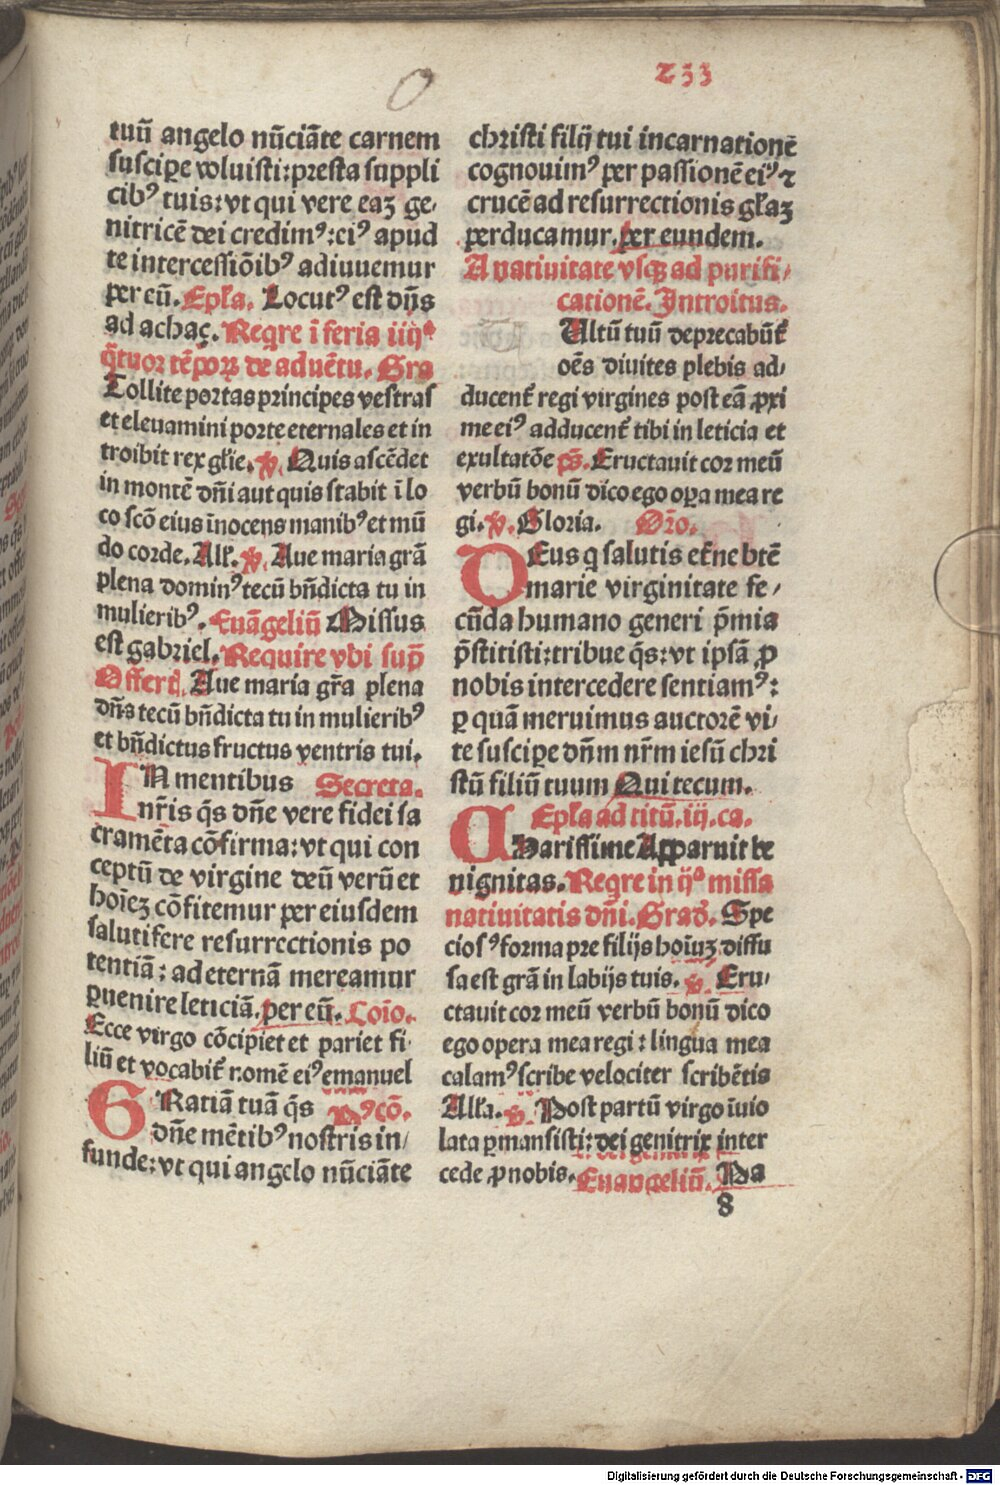 233
tuū angelo nūciāte carnem
suscipe voluisti:presta suppli
cibꝰ tuis:vt qui vere eaʒ ge-
nitricē dei credimꝰ:eiꝰ apud
te intercessiōibꝰ adiuuemur
per eū. Epl'a. Locutꝰ est dn̄s
ad achaç. Reqre ī feria iiijª
q̄tuor tēporꝝ de aduētu. Gra
Tollite portas principes vestras
et eleuamini porte eternales et in
troibit rex gl'ie. ℣. Quis ascēdet
in montē dn̄i aut quis stabit ī lo
co scō eius īnocens manibꝰ et mū
do corde. All'. ℣. Aue maria grā
plena dominꝰ tecū bn̄dicta tu in
mulieribꝰ. Euāgeliū Missus
est gabriel. Require vbi sup̄
Offert. Aue maria gr̄a plena
dn̄s tecū bn̄dicta tu in mulieribꝰ
et bn̄dictus fructus ventris tui.
IN mentibus Secreta.
nr̄is q̄s dn̄e vere fidei sa
cramēta cōfirma:vt qui con
ceptū de virgine deū verū et
hoīeʒ cōfitemur per eiusdem
salutifere resurrectionis po
tentiā: ad eternā mereamur
ꝑuenire leticiā. per eū. Coīo.
Ecce virgo cōcipiet et pariet fi-
liū et vocabit̄ nomē eiꝰ emanuel
GRatiā tuā q̄s Pꝰcō.
dn̄e mētibꝰ nostris in/
funde:vt qui angelo nūciāte
christi filij tui incarnationē
cognouimꝰ per passionē eiꝰ ⁊
crucē ad resurrectionis gl'aʒ
perducamur. per eundem.
A natiuitate vsqꝫ ad purifi/
cationē. Introitus.
Vltū tuū deprecabūt̄
oēs diuites plebis ad/
ducent̄ regi virgines post eā ꝓxi
me eiꝰ adducent̄ tibi in leticia et
exultatōe ps̄. Eructauit cor meū
verbū bonū dico ego oꝑa mea re
gi. ℣. Gloria. Or̄o.
DEus q salutis et̄ne btē
marie virginitate fe/
cūda humano generi p̄mia
p̄stitisti:tribue q̄s:vt ipsā ꝓ
nobis intercedere sentiamꝰ:
ꝑ quā meruimus auctorē vi/
te suscipe dn̄m nr̄m iesū chri
stū filiū tuum Qui tecum.
Epl'a ad titū. iij. ca.
CHarissime Apparuit be
nignitas. Reqre in ijª missa
natiuitatis dn̄i. Grad. Spe
ciosꝰ forma pre filijs hoīuʒ diffu
sa est grā in labijs tuis. ℣. Eru/
ctauit cor meū verbū bonū dico
ego opera mea regi : lingua mea
calamꝰ scribe velociter scribētis
All'a. ℣. Post partū virgo īuio
lata ꝑmansisti: dei genitrix inter
cede ꝓ nobis. Euangeliū. Pa
8
Digitalisierung gefördert durch die Deutsche Forschungsgemeinschaft - DFG